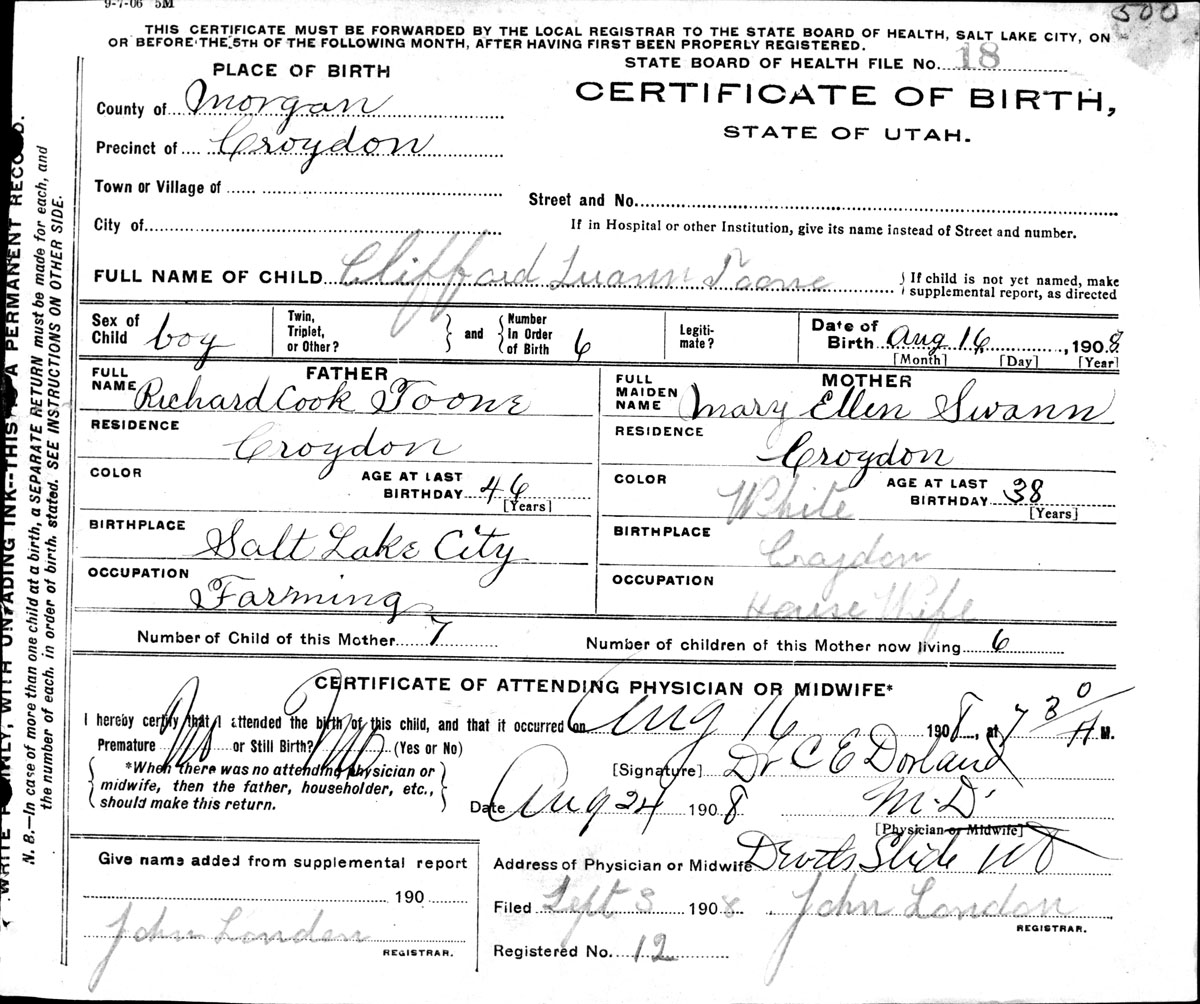 9-7-06 5M
500
THIS CERTIFICATE MUST BE FORWARDED BY THE LOCAL REGISTRAR TO THE STATE BOARD OF HEALTH, SALT LAKE CITY, ON
OR BEFORE THE 5TH OF THE FOLLOWING MONTH, AFTER HAVING FIRST BEEN PROPERLY REGISTERED.
STATE BOARD OF HEALTH FILE No. 18
PLACE OF BIRTH
CERTIFICATE OF BIRTH,
STATE OF UTAH.
County of Morgan
Precinct of Croydon
Town or Village of
Street and No.
City of
If in Hospital or other Institution, give its name instead of Street and number.
FULL NAME OF CHILD Clifford Luann Toone
If child is not yet named, make
supplemental report, as directed
Sex of Child boy
Twin, Triplet, or Other?
and
Number In Order of Birth 6
Legiti-mate?
Date of Birth Aug 16, 1908
[Month] [Day] [Year]
FATHER
FULL NAME Richard Cook Toone
RESIDENCE
Croydon
COLOR
AGE AT LAST BIRTHDAY 46
[Years]
BIRTHPLACE
Salt Lake City
OCCUPATION
Farming
MOTHER
FULL MAIDEN NAME Mary Ellen Swann
RESIDENCE
Croydon
COLOR White
AGE AT LAST BIRTHDAY 38
[Years]
BIRTHPLACE
Craydon
OCCUPATION
House Wife
Number of Child of this Mother 7
Number of children of this Mother now living 6
CERTIFICATE OF ATTENDING PHYSICIAN OR MIDWIFE*
I hereby certify that I attended the birth of this child, and that it occurred on Aug 16 1908, at 7 30 A M.
Premature No or Still Birth? No (Yes or No)
*When there was no attending physician or
midwife, then the father, householder, etc.,
should make this return.
[Signature] Dr C E Dorland
Date Aug 24 1908 M.D.
[Physician or Midwife]
Address of Physician or Midwife Devils Slide Ut
Give name added from supplemental report
190
John London
REGISTRAR.
Filed Sept 3 1908 John London
REGISTRAR.
Registered No. 12
WRITE PLAINLY, WITH UNFADING INK--THIS IS A PERMANENT RECORD.
N. B.—In case of more than one child at a birth, a SEPARATE RETURN must be made for each, and
the number of each, in order of birth, stated. SEE INSTRUCTIONS ON OTHER SIDE.